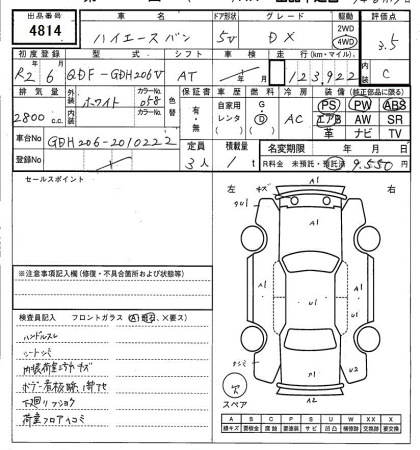 出品番号 車名 ドア形状 グレード 駆動 評価点
4814 ハイエースバン 5V DX 2WD 4WD 3.5
初度登録 型式 シフト 車検 走行(km・マイル) 内装
R2年6月 QDF-GDH206V AT 123,922 C
排気量 外装 カラーNo. 色替 保証書 車歴 燃料 冷房 装備(純正部品に限る)
2800c.c. ホワイト 058 有・無 自家用 レンタ ( ) G・D ( ) AC PS PW ABS
内装 カラーNo. エアB AW SR
革 ナビ TV
車台No GDH206-2010222 定員 積載量 名変期限 年 月 日
登録No 3人 1t R料金 未預託・預託済 9,550円
セールスポイント 左 右
キズ A1
クU1
A1 U1 A1
※注意事項記入欄(修復・不具合箇所および状態等)
検査員記入 フロントガラス (A1 飛石、×要ス)
ハンドルスレ
シートシミ
内張荷室ヨゴレキズ
ボデー看板跡
下廻リ
荷室フロア
U2
A2
スペア
A B C P S U W X XX
線キズ 要板金 腐蝕 要塗装 サビ 凹凸 補修跡 交換跡 要交換